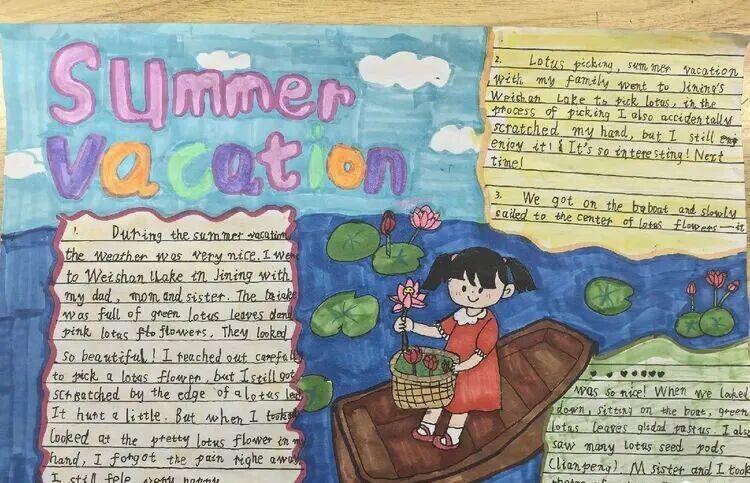 Summer
vacation
1. During the summer vacation
the weather was very nice. I went
to Weishan Lake in Jining with
my dad, mom and sister. The lake
was full of green lotus leaves and
pink lotus flowers. They looked
so beautiful! I reached out carefully
to pick a lotas flower, but I still got
scratched by the edge of a lotus lea
It hurt a little. But when I
looked at the pretty lotus flower in m
hand, I forgot the pain righe away
I still fele very happy
1
2. Lotus picking, summer vacation
with my family went to Jining's
Weishan Lake to pick lotus, in the
process of picking I also accidentally
scratched my hand, but I still
enjoy it! It's so interesting! Next
time!
3. We got on the boat and slowly
sailed to the center of lotus flowers — it
was so nice! When we looked
down, sitting on the boat, green
lotus leaves past us. I also
saw many lotus seed pods
(lianpeng) M sister and I took
photos of